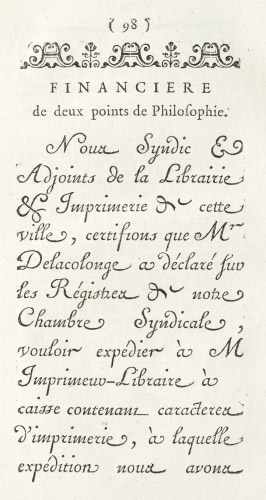 ( 98 )
FINANCIERE
de deux points de Philosophie.
Nous Syndic &
Adjoints de la Librairie
& Imprimerie de cette
ville, certifions que Mr
Delacolonge a déclaré sur
les Régistres de notre
Chambre Syndicale,
vouloir expédier à M
Imprimeur-Libraire à
caisse contenant caracteres
d'imprimerie, à laquelle
expédition nous avons